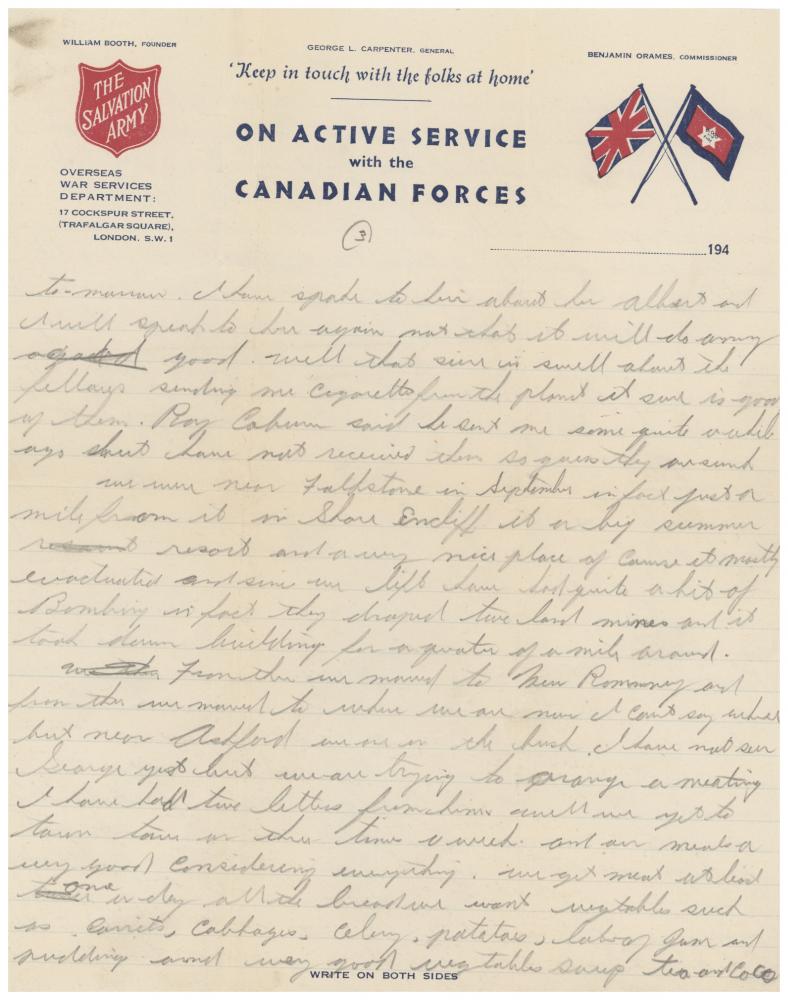 WILLIAM BOOTH, FOUNDER
GEORGE L. CARPENTER, GENERAL
BENJAMIN ORAMES, COMMISSIONER
'Keep in touch with the folks at home'
THE
SALVATION
ARMY
ON ACTIVE SERVICE
with the
CANADIAN FORCES
OVERSEAS
WAR SERVICES
DEPARTMENT:
17 COCKSPUR STREET,
(TRAFALGAR SQUARE),
LONDON. S.W.1
3
194
to-morrow. I have spoke to him about her Albert and
I will speak to her again not that it will do any
good. well that sure is swell about the
fellows sending me cigaretts from the plant it sure is good
of them. Roy Coburn said he sent me some quite a while
ago but have not received them so guess they are sunk
we were near Falkstone in September in fact just a
mile from it in Shore Encliff it a big summer
resort and a very nice place of course it mostly
evactuated and since we left have had quite a bit of
Bombing in fact they droped two land mines and it
took down building for a quater of a mile around.
From ther we moved to New Rommney and
from ther we moved to where we are now I can't say where
but near Ashford we are in the bush. I have not seen
George yet but we are trying to arange a meating
I have had two letters from him well we get to
town two or three time a week. and our meals a
very good considering everything. we get meat at least
one a day all the bread we want vegtables such
as carrits, cabbages, celery, potatoes, lots of jam and
pudding and very good vegtables soup tea and CoCo
WRITE ON BOTH SIDES